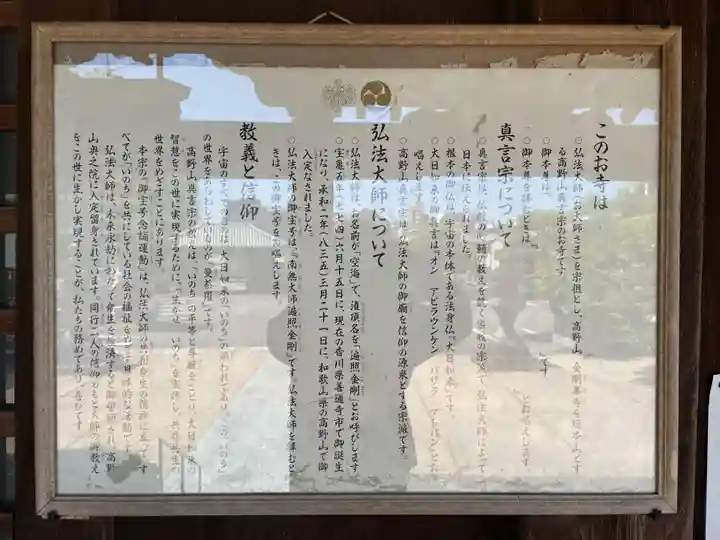 このお寺は
○弘法大師(お大師さま)を宗祖とし、高野山 金剛峯寺を総本山とす
る高野山真言宗のお寺です。
○御本尊は、 です
○御本尊を拝むときは、 とお唱えします
真言宗について
○真言宗は、仏教の て、弘法大師によって
日本に伝えられました。
○根本の御仏は、宇宙の本体である法身仏『大日如来』です。
○大日如来の御真言は『オン アビラウンケン バザラ ダトバン』とお
唱えします
○高野山真言宗は、弘法大師の御廟を信仰の源泉とする宗派です。
弘法大師について
○弘法大師は、お名前が「空海」で、灌頂名を「遍照金剛」とお呼びします
○宝亀五年(七七四)六月十五日に、現在の香川県善通寺市で御誕生
になり、承和二年(八三五)三月二十一日に、和歌山県の高野山で御
入定なされました。
○弘法大師の御宝号は、『南無大師遍照金剛』です。弘法大師を拝むと
きは、この御宝号をお唱えします
教義と信仰
宇宙のすべてのものは、大日如来の「いのち」の現われであり、この「いのち」
の世界をあらわしているのが「曼荼羅」です。
高野山真言宗の は、「いのち」の平等と尊厳をさとり、大日如来の
智慧をこの世に実現するために、「生かせ いのち」を実践し、共存共生の
世界をめざすことにあります。
本宗の「御宝号念誦運動」は、弘法大師の に立って、す
べてが「いのち」を共にしている社会の福祉をめざす 的な活動です
弘法大師は、未来永劫にわたって衆生を化済すると御誓願され、高野
山奥之院に入定留身されています。同行二人の信仰のもと大師の御教え
をこの世に生かし実現することが、私たちの務めであり、喜びです